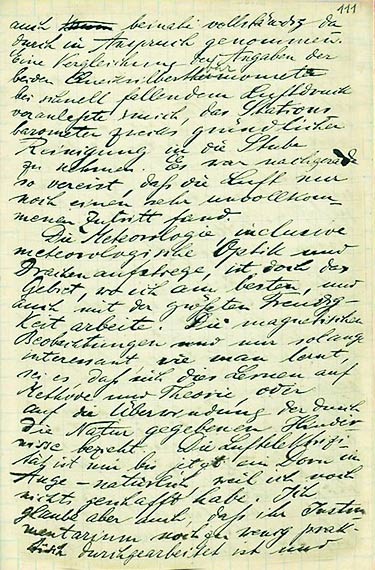 111
auch beinahe vollständig da
durch in Anspruch genommen.
Eine Vergleichung der Angaben der
beiden Quecksilberthermometer
bei schnell fallendem Luftdruck
veranlaßte mich das Stations
barometer zwecks gründlicher
Reinigung in die Stube
zu nehmen. Es war nachgerade
so vereist, daß die Luft nur
noch einen sehr unvollkom-
menen Zutritt fand.
Die Meteorologie, inclusive
meteorologische Optik und
Drachenaufstiege, ist doch das
Gebiet, wo ich am besten, und
auch mit der größten Freudig-
keit arbeite. Die magnetischen
Beobachtungen sind nur solang
interessant wie man lernt,
sei es daß sich dies Lernen auf
Methode und Theorie, oder
auf die Überwindung der durch
die Natur gegebenen Hinder
nisse bezieht. Die Luftelektrizi
tät ist mir bis jetzt ein Dorn im
Auge – natürlich weil ich noch
nichts geschafft habe. Ich
glaube aber auch, daß ihr Instru
mentarium noch zu wenig prak-
tisch durchgearbeitet ist und